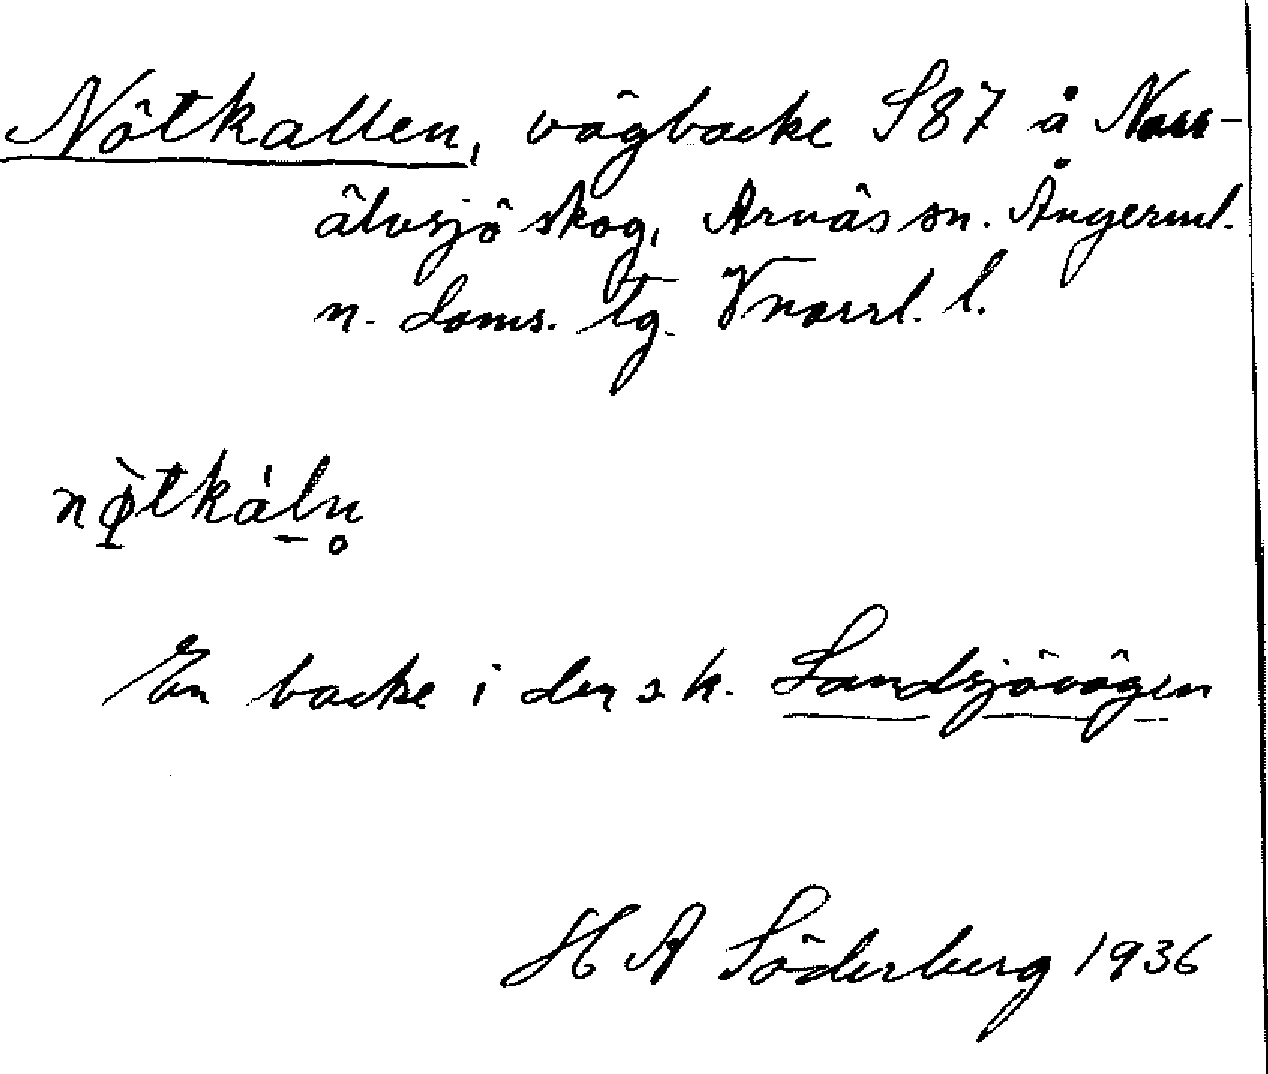 Nötkallen, vägbacke S87 å Norr-
älvsjö skog, Arnäs sn. Ångerml.
n. doms. tg. Vnorrl. l.
nø̀tkáln̥
En backe i den s.k. Landsjövägen
H A Söderberg 1936